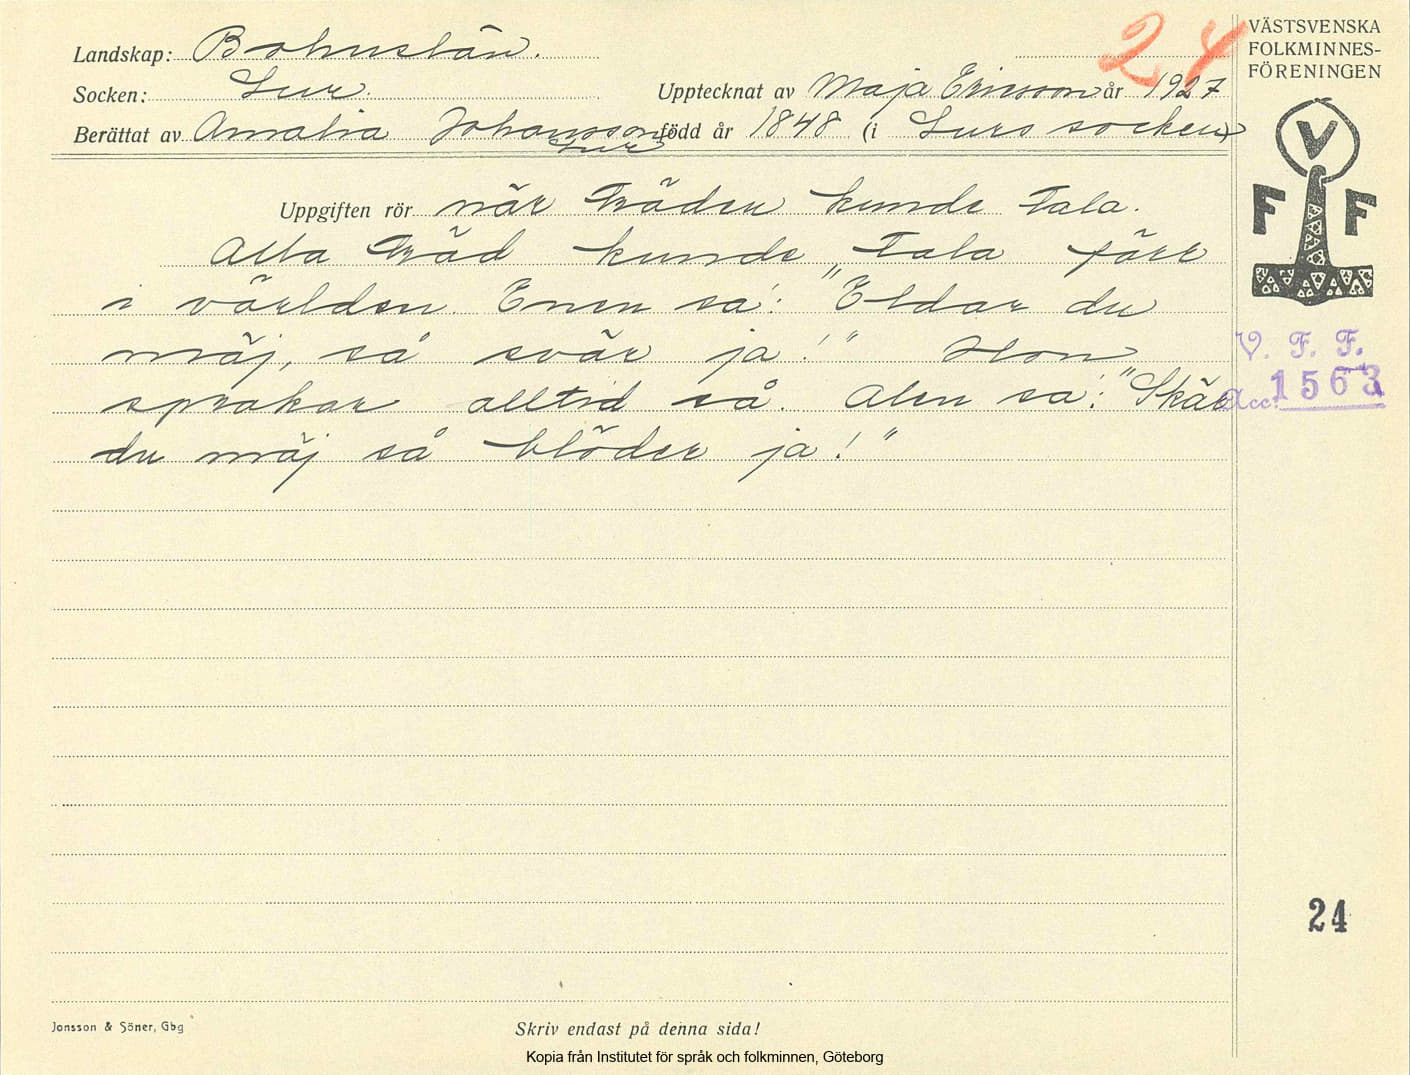 24
VÄSTSVENSKA
FOLKMINNES-
FÖRENINGEN
Landskap: Bohuslän.
Socken: Lur.
Upptecknat av Maja Ericsson år 1927
Berättat av Amalia Johansson Lur född år 1848 (i Lurs socken)
V
F F
Uppgiften rör när träden kunde tala.
Alla träd kunde tala förr
i världen. Enen sa: "Eldar du
mäj, så svär ja!" Hon
sprakar alltid så. Alen sa: "Skär
du mäj så blöder ja!"
V. F. F.
Acc: 1563
24
Jonsson & Söner, Gbg
Skriv endast på denna sida!
Kopia från Institutet för språk och folkminnen, Göteborg